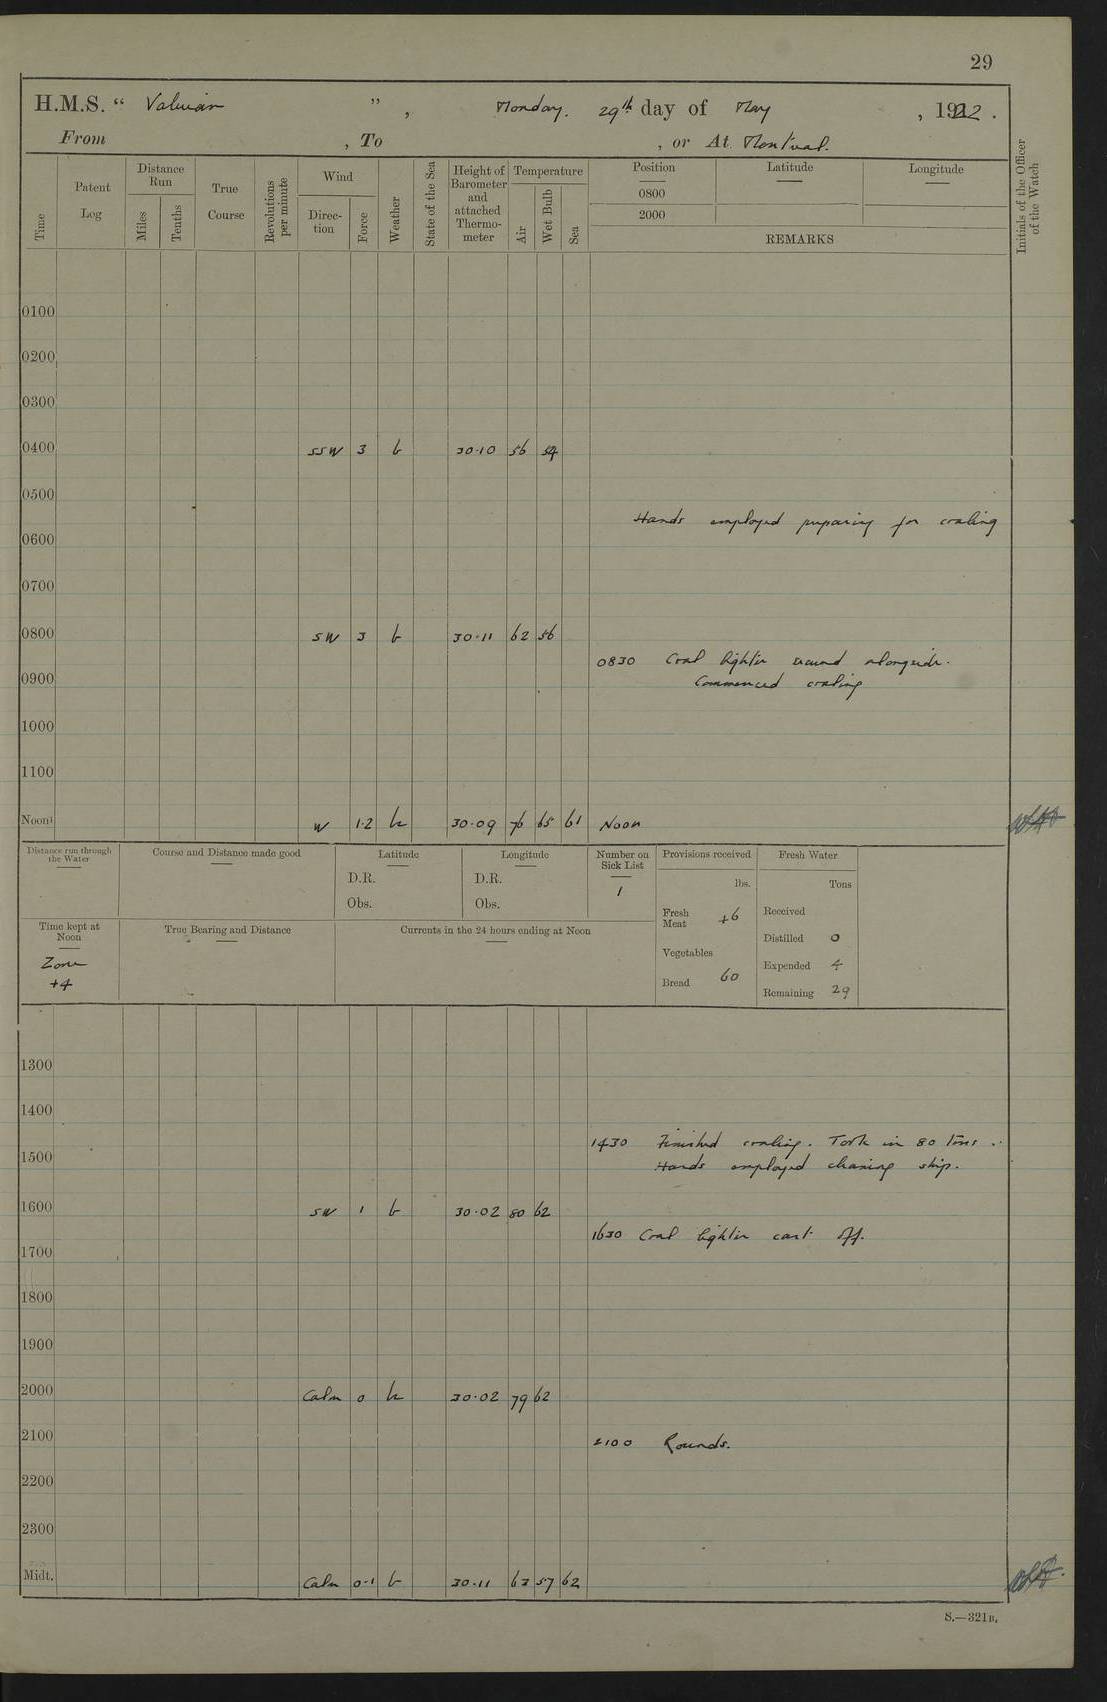 29
H.M.S. “ Valerian ” , Monday. 29th day of May , 1922 .
From , To , or At Montreal.
Time
Patent Log
Distance Run
Miles
Tenths
True Course
Revolutions per minute
Wind
Direction
Force
Weather
State of the Sea
Height of Barometer and attached Thermometer
Temperature
Air
Wet Bulb
Sea
Position
Latitude
Longitude
0800
2000
REMARKS
Initials of the Officer of the Watch
0100
0200
0300
0400 SSW 3 b 30·10 56 54
0500
Hands employed preparing for coaling
0600
0700
0800 SW 3 b 30·11 62 56
0830 Coal lighter secured alongside.
Commenced coaling
0900
1000
1100
Noon W 1·2 bc 30·09 76 65 61 Noon
Distance run through the Water
Course and Distance made good
Latitude
D.R.
Obs.
Longitude
D.R.
Obs.
Number on Sick List
1
Provisions received
lbs.
Fresh Meat 46
Vegetables
Bread 60
Fresh Water
Tons
Received
Distilled 0
Expended 4
Remaining 29
Time kept at Noon
Zone
+4
True Bearing and Distance
Currents in the 24 hours ending at Noon
1300
1400
1430 Finished coaling. Took in 80 Tons .
1500
Hands employed cleaning ship.
1600 SW 1 b 30·02 80 62
1630 Coal lighter cast off.
1700
1800
1900
2000 Calm 0 bc 30·02 79 62
2100 2100 Rounds.
2200
2300
Midt. Calm 0·1 b 30·11 63 57 62
S.—321B.